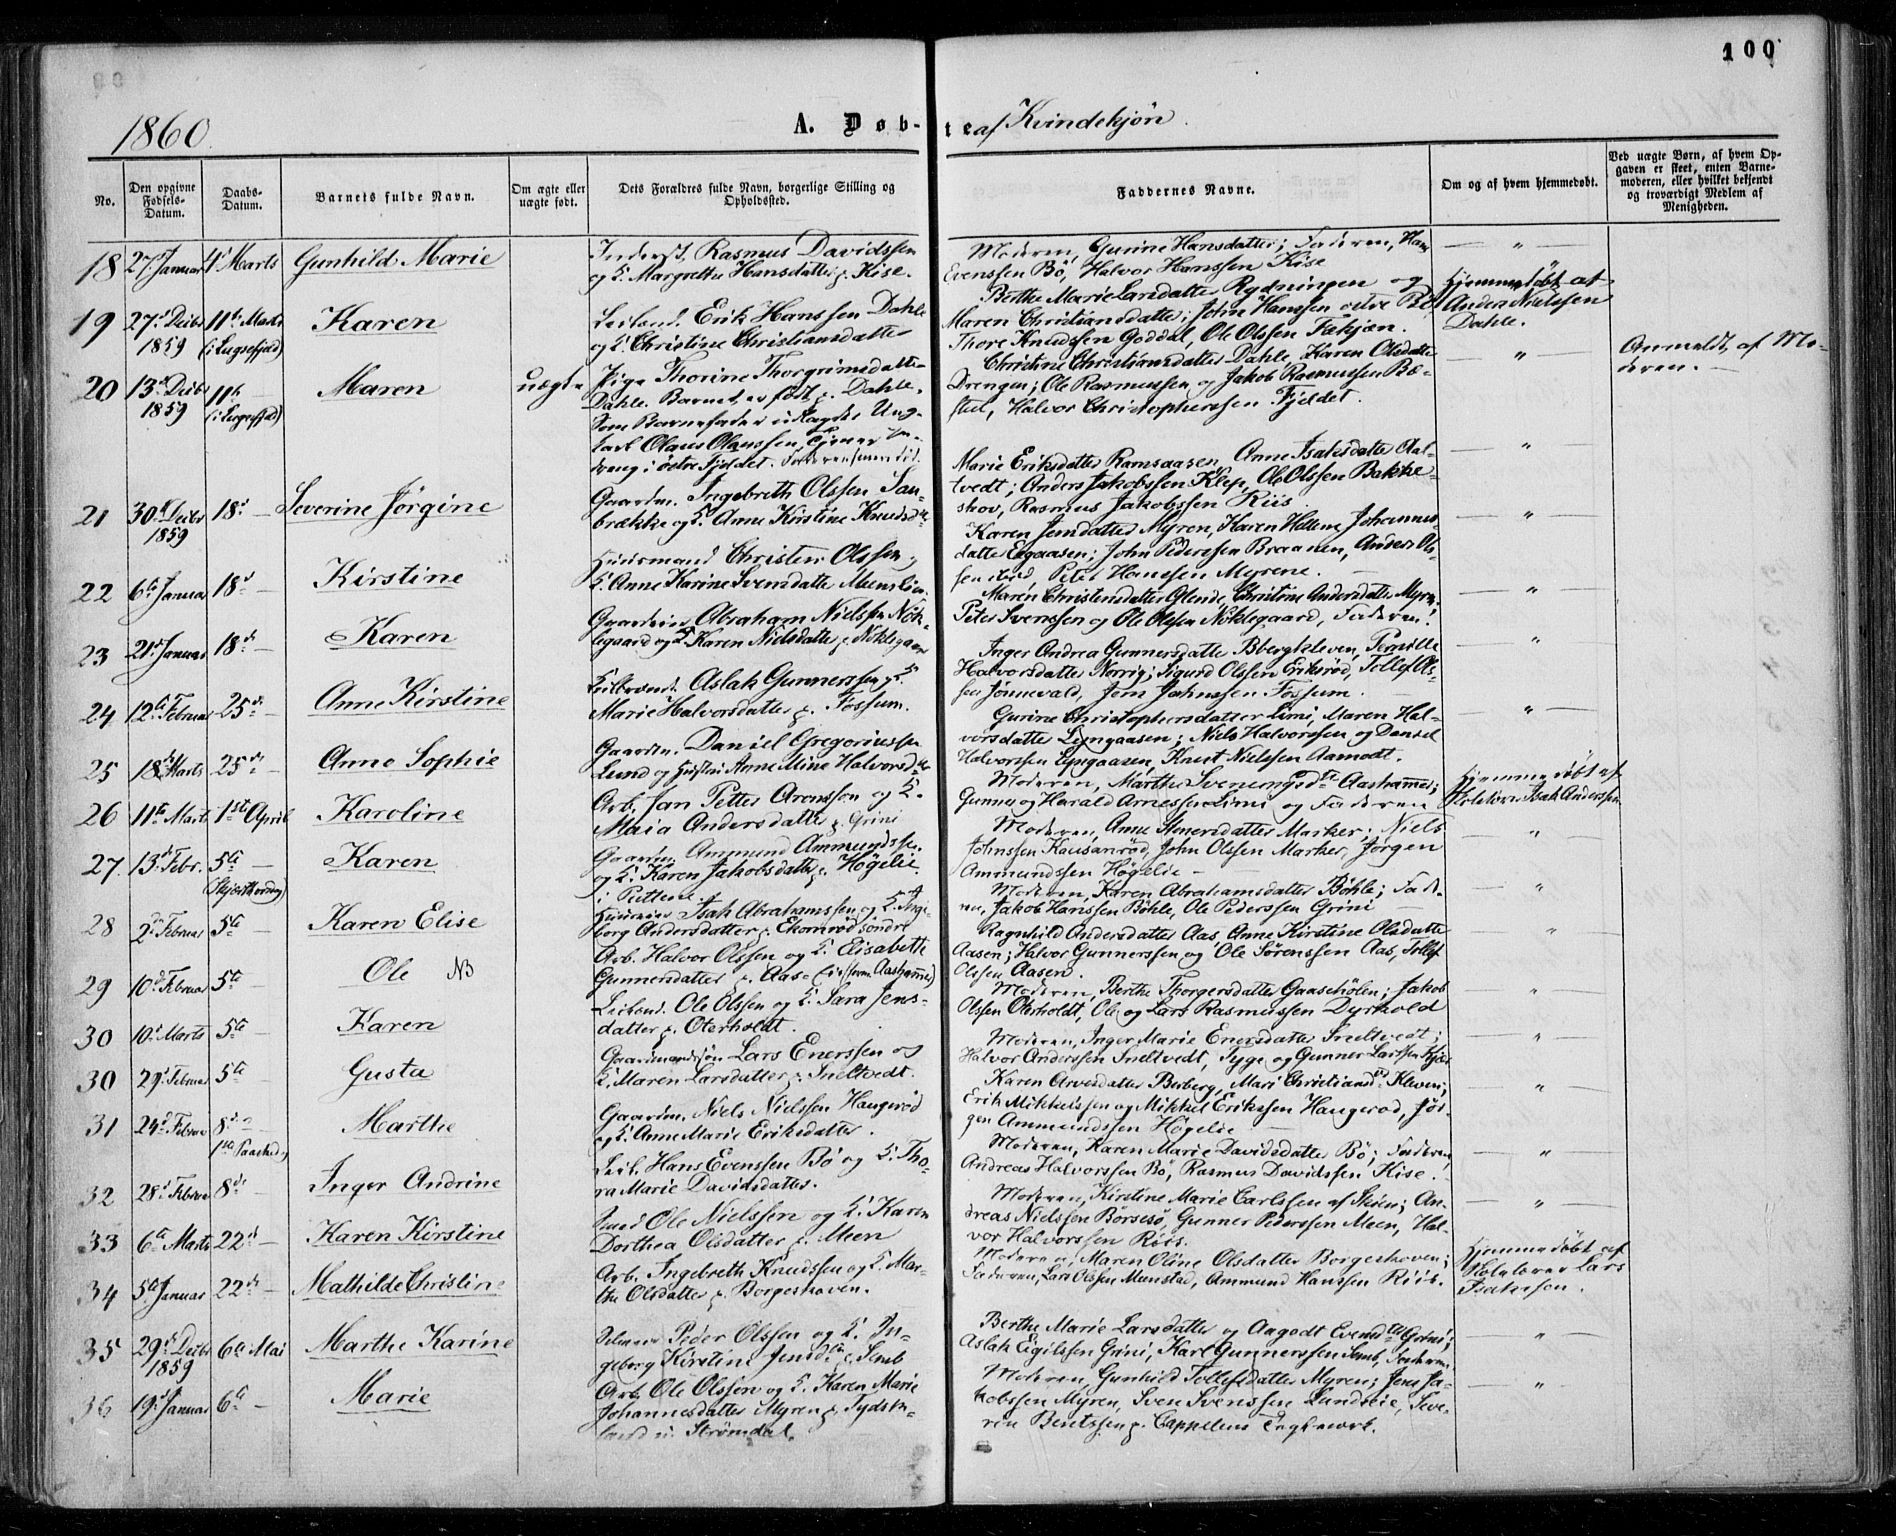 100
1860.
A. Døb-te af Kvindekjøn.
No.
Den opgivne Fødsels-Datum.
Daabs-Datum.
Barnets fulde Navn.
Om ægte eller uægte født.
Dets Forældres fulde Navn, borgerlige Stilling og Opholdssted.
Faddernes Navne.
Om og af hvem hjemmedøbt.
Ved uægte Børn, af hvem Opgaven er skeet, enten Barnemoderen, eller hvilket bekjendt og troværdigt Medlem af Menigheden.
18 27. Januar 4de Marts Gunhild Marie
Inderst, Rasmus Davidssen
og K. Margrethe Hansdatter p. Kise.
Moderen, Gurine Hansdatter; Faderen, Hans
Evenssen Bø, Halvor Hanssen Kise
— " —
19 27d Decbr 1859 11te Marts Karen
Leilænd. Erik Hanssen Dahle
og K. Christine Christiansdatter
Berthe Marie Larsdatter Rydningen og
Maren Christiansdatter; John Hanssen
Thore Knudssen Goddal, Ole Olssen
Hjemmedøbt af
Anders Nielssen
Dahle.
20 13de Decbr 1859 11te — Maren uægte
Pige Thorine Thorgrimsdatter
Dahle. Barnet er født p. Dahle.
Som Barnefader udlagdes Ung-
karl Olaus Olaussen
i østre Fjeldet.
Christine Christiansdatter Dahle, Karen Olsdatter
Drengen; Ole Rasmussen og Jakob Rasmussen Bæ-
stul, Halvor Christopherssen Fjeldet.
— " —
Anmeldt af Mo-
deren. —
21 30te Decbr 1859 18d — Severine Jørgine
Gaardm. Ingebreth Olssen San-
brække og K. Anne Kirstine Knudsdtr
Marie Eriksdatter Ramsaasen, Anne Isaksdatter Aal-
tvedt; Anders Jakobssen Klep, Ole Olssen Bakke-
skov, Rasmus Jakobssen Riis
— " —
22 6te Januar 18d — Kirstine
Huusmand Christen Olssen,
K. Anne Karine Svensdatter
Karen Jensdatter Myren, Karen Hellene Johannes-
datter; John Pederssen Braanen, Anders Ols-
sen, Peter Hanssen Myrene.
— " —
23 21de Januar 18de — Karen
Gaardeier Abraham Nielssen Nøk-
legaard og K. Karen Nielsdatter p. Nøklegaard
Maren Christensdatter Glende, Christine Andersdatter Myren;
Peter Svenssen og Ole Olssen Nøklegaard, Faderen.
— " —
24 12te Februar 25de — Anne Kirstine
Aslak Gunnerssen og K.
Marie Halvorsdatter p. Fossum.
Inger Andrea Gunnersdatter, Pernille
Halvorsdatter Norrig; Sigurd Olssen Eriksrød, Tollef Ols-
sen Jønnevald, Jom Jahnssen Fossum.
— " —
25 18de Marts 25de — Anne Sophie
Gaardm. Daniel Gregoriussen
Lund og Hustru Anne Mine Halvorsdtr
Gurine Christophersdatter Limi, Maren Hal-
vorsdatter Lyngaasen; Niels Halvorssen og Daniel
Halvorssen Lyngaasen, Knut Nielssen Aamodt.
— " —
26 11te Marts 1ste April Karoline
Arb. Jan Petter Aronssen og K.
Maia Andersdatter p. Grini
Moderen, Marthe Aashammer;
Gunner og Harald Arnessen Limi og Faderen
Hjemmedøbt af
Isak Anderssen
27. 13de Febr. 5te — (Skjærthorsdag) Karen
Gaardm. Ammund Ammundssen
og K. Karen Jakobsdatter p. Høgelie.
Moderen, Anne Steneredatter Marker; Niels
Johnssen Kausanrød, John Olssen Marker, Jørgen
Ammundssen Høgelie —
— " —
28 2de Februar 5te — Karen Elise
Isak Abrahamssen og K. Inge-
borg Andersdatter p. Ekornrød søndre
Moderen, Karen Abrahamsdatter Bøhle; Fade-
ren, Jakob Hanssen Bøhle, Ole Pederssen Grini —
— " —
29 10de Februar 5te — Ole NB
Arb. Halvor Olssen og K. Elisabeth
Gunnersdatter p. Aas
Ragnhild Andersdatter Aas, Anne Kirstine Olsdatter
Aasen; Halvor Gunnerssen og Ole Sørenssen Aas, Tollef
Olssen Aasen.
— " —
30 10d Marts 5te — Karen
Leilænd. Ole Olssen og K. Sara Jens-
datter p. Oterholdt.
Moderen, Berthe Thorgersdatter Gaasehølen; Jakob
Olssen Oterholdt, Ole og Lars Rasmussen Dyrkold
— " —
30 29d Februar 5te — Gusta
Gaardmandssøn Lars Enerssen og
K. Maren Larsdatter p. Sneltvedt.
Moderen, Inger Marie Enersdatter Sneltvedt;
Halvor Anderssen Sneltvedt, Tyge og Gunner Larssen
— " —
31 24d Februar 8de — 1ste Paaskedag Marthe
Gaardm. Niels Nielssen Haugerød
og K. Anne Marie Eriksdatter.
Karen Arvesdatter Berberg, Mari Christiansdtr Kleven;
Erik Mikkelssen og Mikkel Erikssen Haugerød, Jør-
gen Ammundssen Høgelie —
— " —
32 28d Februar 8de — Inger Andrine
Leil. Hans Evenssen Bø og K. Tho-
ra Marie Davidsdatter.
Moderen, Karen Marie Davidsdatter Bø; Faderen,
Andreas Halvorssen Bø, Rasmus Davidssen Kise.
— " —
33 6te Marts 22d — Karen Kirstine
Smed Ole Nielssen og K. Karen
Dorthea Olsdatter p. Meen
Moderen, Kirstine Marie Carlssen af Skien; An-
dreas Nielssen Børsesø, Gunner Pederssen Meen, Hal-
vor Halvorssen Riis.
— " —
34 5te Januar 22de — Mathilde Christine
Arb. Ingebreth Knudssen og K. Mar-
the Olsdatter p. Borgeskoven.
Moderen, Maren Oline Olsdatter Borgeskoven;
Faderen, Lars Olssen Menstad, Ammund Hanssen Riis.
Hjemmedøbt af
Skolelærer Lars
Isakssen.
35 29de Decbr 1859 6te Mai Marthe Karine
Peder Olssen og K. In-
geborg Kirstine Jensdtr p. Semb
Berthe Marie Larsdatter og Aagodt Evensdtr Grini;
Aslak Eigilssen Grini, Karl Gunnerssen Semb, Faderen
— " —
36 19de Januar 6te — Marie
Arb. Ole Olssen og K. Karen Marie
Johannesdatter Myren p. Tydsk-
land u. Strømdal.
Moderen, Gunhild Tollefsdatter Myren; Jens Ja-
kobssen Myren, Sven Svenssen Sandveie, Seve-
rin Bentssen p. Cappelens Teglværk.
— " —